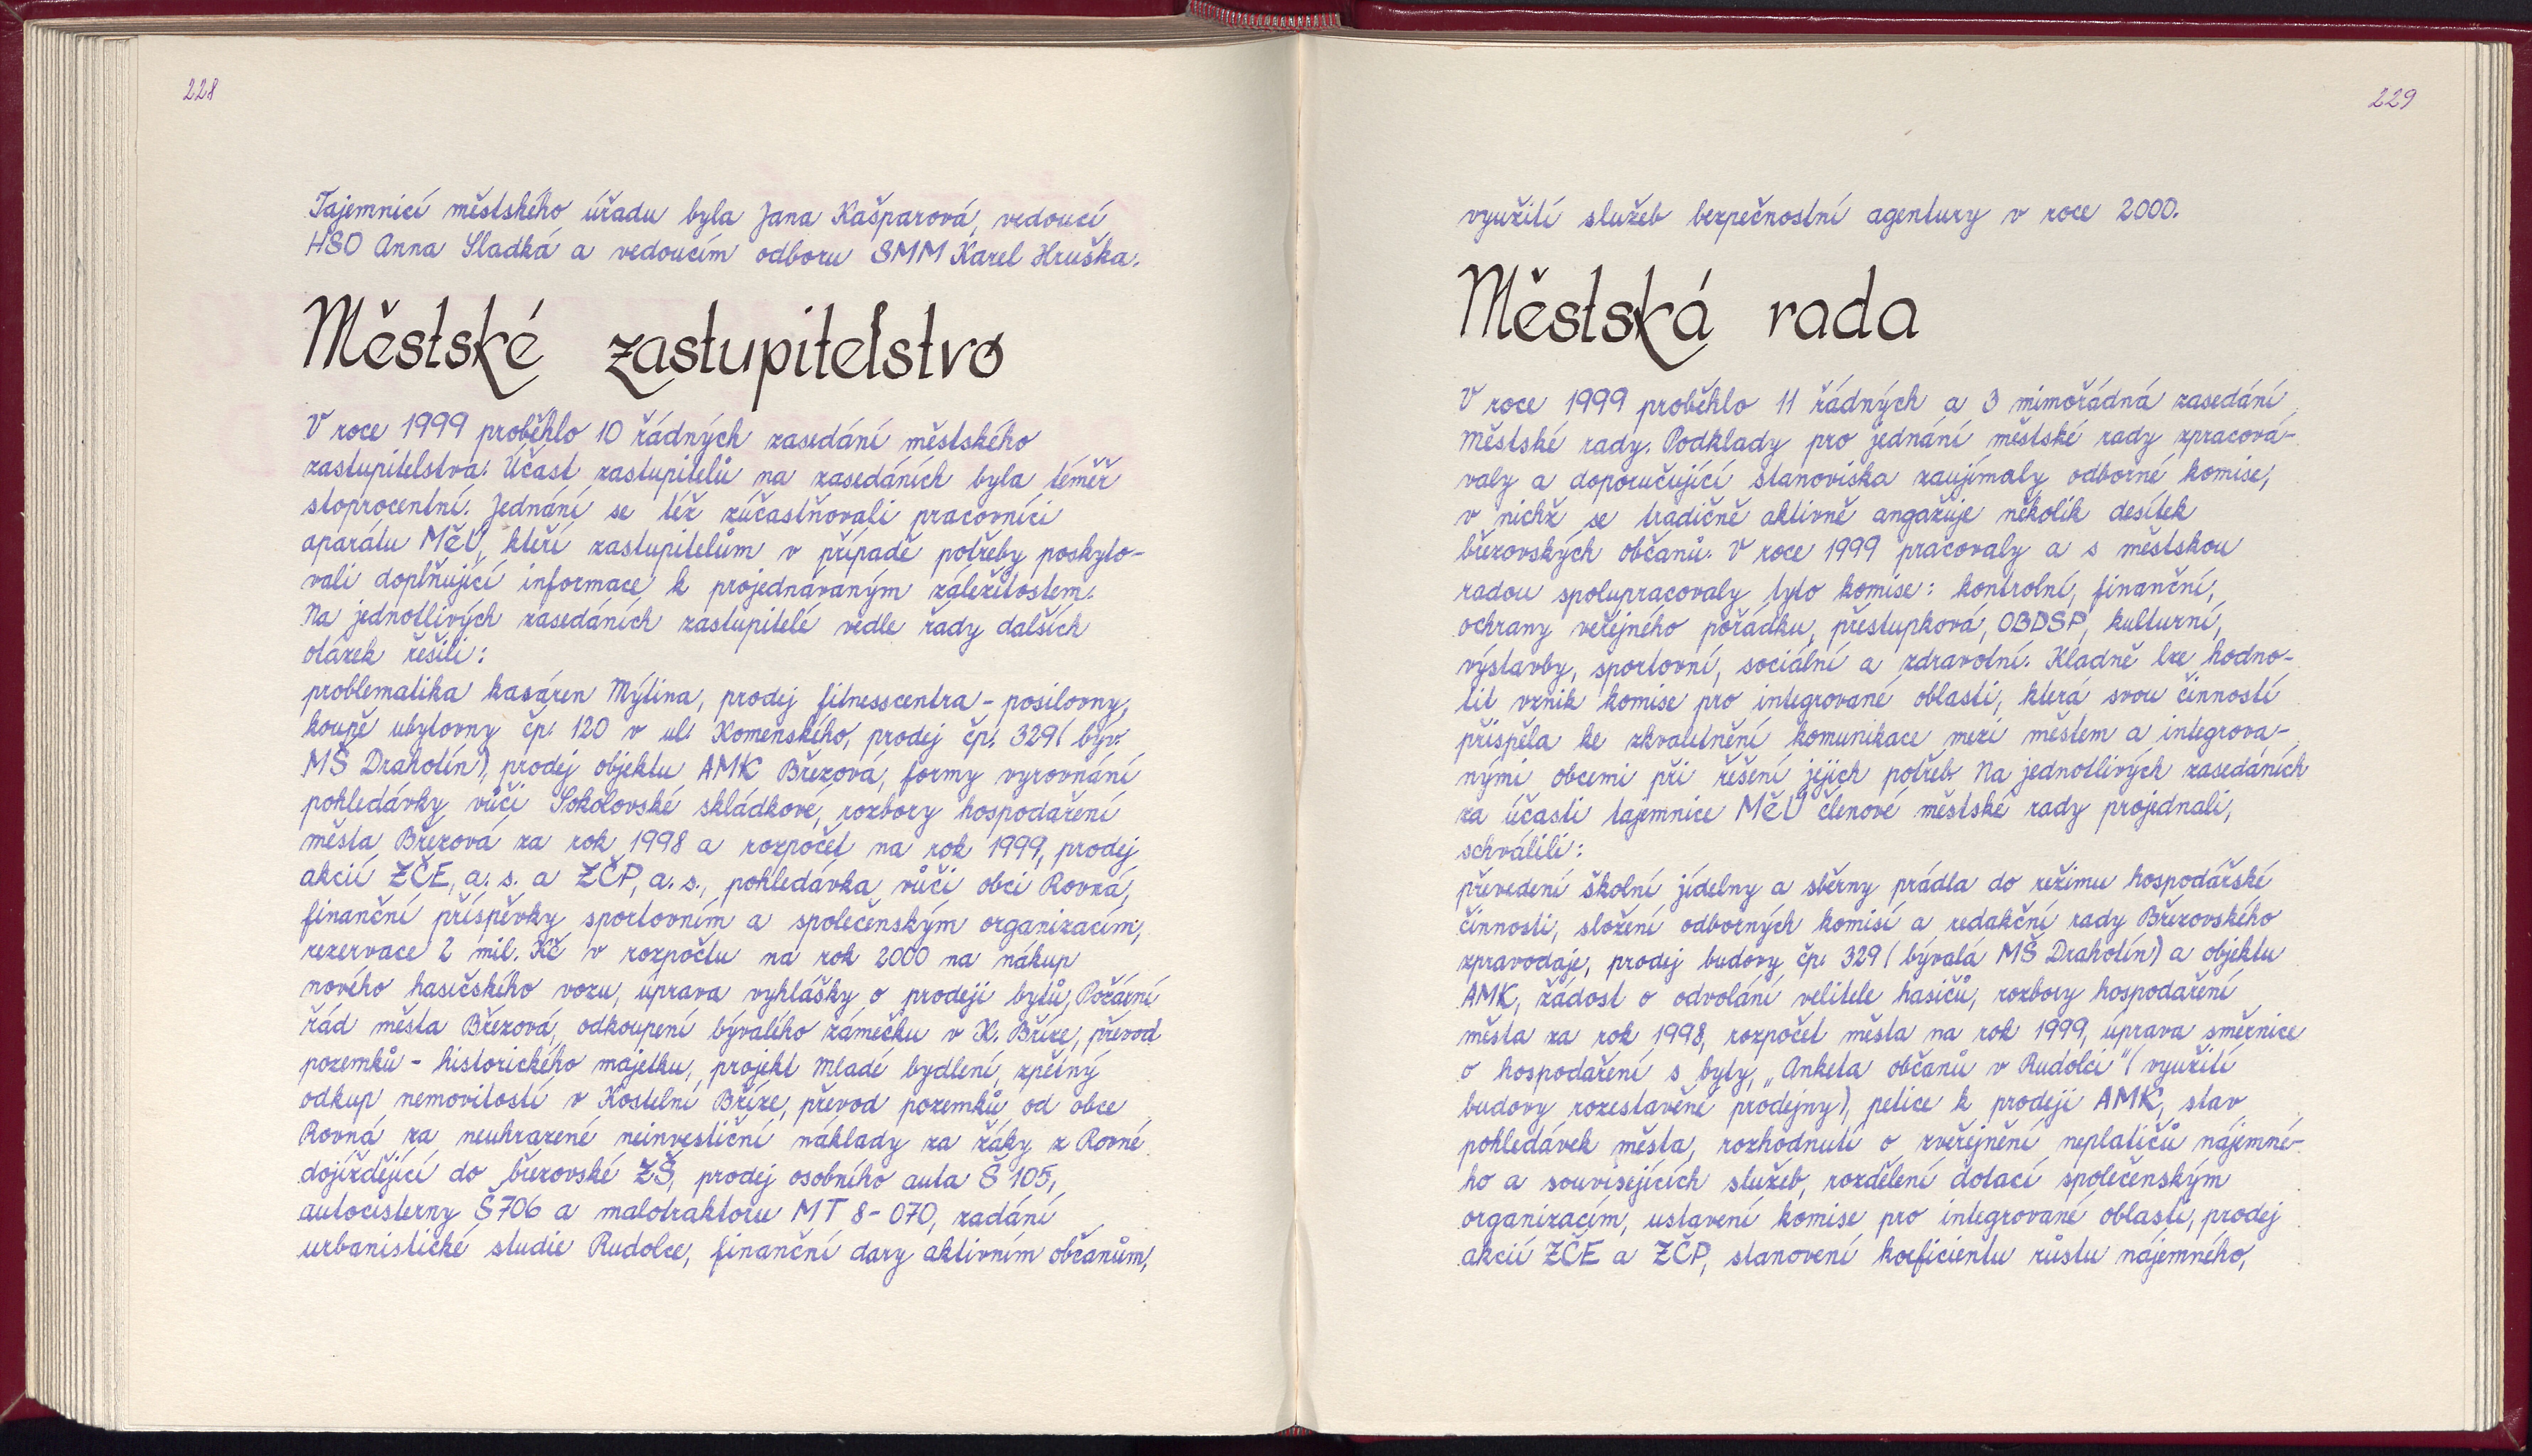 228
Tajemnicí městského úřadu byla Jana Kašparová, vedoucí
HSO Anna Sladká a vedoucím odboru SMM Karel Hruška.
Městské zastupitelstvo
V roce 1999 proběhlo 10 řádných zasedání městského
zastupitelstva. Účast zastupitelů na zasedáních byla téměř
stoprocentní. Jednání se též zúčastňovali pracovníci
aparátu MěÚ, kteří zastupitelům v případě potřeby poskyto-
vali doplňující informace k projednávaným záležitostem.
Na jednotlivých zasedáních zastupitelé vedle řady dalších
otázek řešili:
problematika kasáren Mýtina, prodej fitnesscentra - posilovny,
koupě ubytovny čp. 120 v ul. Komenského, prodej čp. 329 (býv.
MŠ Draholín), prodej objektu AMK Březová, formy vyrovnání
pohledávky vůči Sokolovské skládkové, rozbory hospodaření
města Březová za rok 1998 a rozpočet na rok 1999, prodej
akcií ZČE, a. s. a ZČP, a. s., pohledávka vůči obci Rovná,
finanční příspěvky sportovním a společenským organizacím,
rezervace 2 mil. Kč v rozpočtu na rok 2000 na nákup
nového hasičského vozu, úprava vyhlášky o prodeji bytů, Požární
řád města Březová, odkoupení bývalého zámečku v K. Bříze, převod
pozemků - historického majetku, projekt Mladé bydlení, zpětný
odkup nemovitostí v Kostelní Bříze, převod pozemků od obce
Rovná za neuhrazené neinvestiční náklady za žáky z Rovné
dojíždějící do březovské ZŠ, prodej osobního auta Š 105,
autocisterny Š 706 a malotraktoru MT 8-070, zadání
urbanistické studie Rudolce, finanční dary aktivním občanům,
229
využití služeb bezpečnostní agentury v roce 2000.
Městská rada
V roce 1999 proběhlo 11 řádných a 3 mimořádná zasedání
městské rady. Podklady pro jednání městské rady zpracová-
valy a doporučující stanoviska zaujímaly odborné komise,
v nichž se tradičně aktivně angažuje několik desítek
březovských občanů. V roce 1999 pracovaly a s městskou
radou spolupracovaly tyto komise: kontrolní, finanční,
ochrany veřejného pořádku, přestupková, OBDSP, kulturní,
výstavby, sportovní, sociální a zdravotní. Kladně lze hodno-
tit vznik komise pro integrované oblasti, která svou činností
přispěla ke zkvalitnění komunikace mezi městem a integrova-
nými obcemi při řešení jejich potřeb. Na jednotlivých zasedáních
za účasti tajemnice MěÚ členové městské rady projednali,
schválili:
převedení školní jídelny a sběrny prádla do režimu hospodářské
činnosti, složení odborných komisí a redakční rady Březovského
zpravodaje, prodej budovy čp. 329 (bývalá MŠ Draholín) a objektu
AMK, žádost o odvolání velitele hasičů, rozbory hospodaření
města za rok 1998, rozpočet města na rok 1999, úprava směrnice
o hospodaření s byty, „Anketa občanů v Rudolci" (využití
budovy rozestavěné prodejny), petice k prodeji AMK, stav
pohledávek města, rozhodnutí o zveřejnění neplatičů nájemné-
ho a souvisejících služeb, rozdělení dotací společenským
organizacím, ustavení komise pro integrované oblasti, prodej
akcií ZČE a ZČP, stanovení koeficientu růstu nájemného,